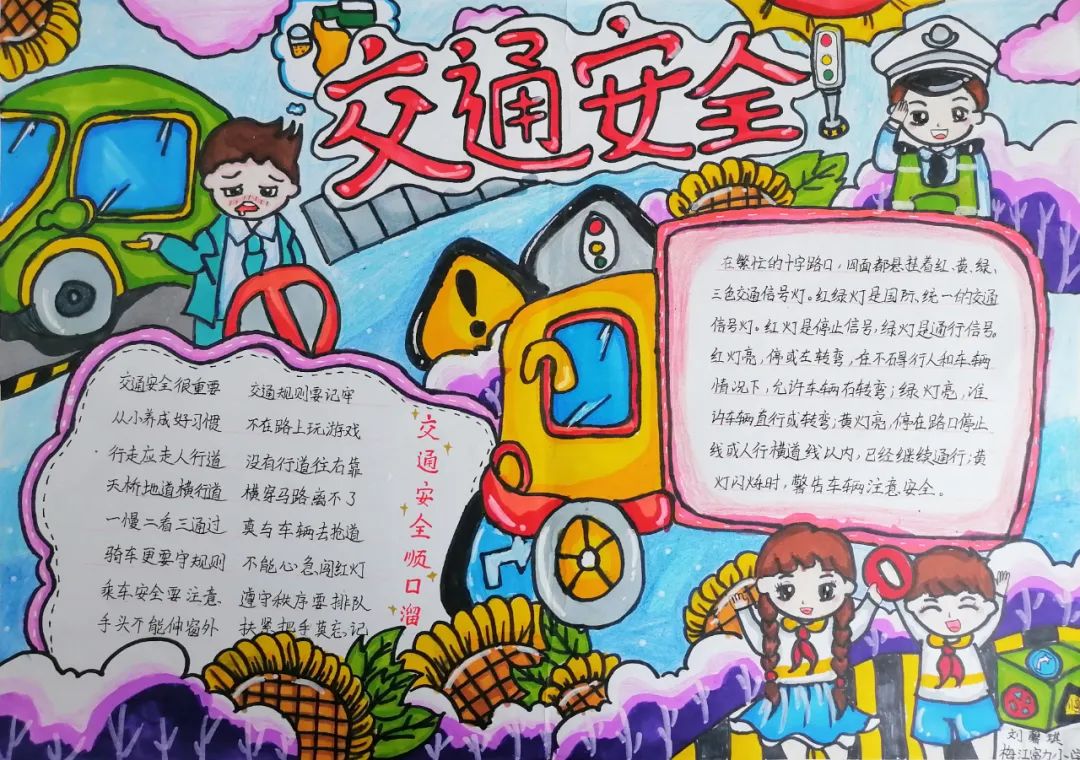 交通安全
交通安全顺口溜
交通安全很重要 交通规则要记牢
从小养成好习惯 不在路上玩游戏
行走应走人行道 没有行道往右靠
天桥地道横行道 横穿马路离不了
一慢二看三通过 莫与车辆去抢道
骑车更要守规则 不能心急闯红灯
乘车安全要注意 遵守秩序要排队
手头不能伸窗外 扶紧把手莫忘记
在繁忙的十字路口,四面都悬挂着红、黄、绿、
三色交通信号灯。红绿灯是国际、统一的交通
信号灯。红灯是停止信号,绿灯是通行信号。
红灯亮,停或左转弯,在不碍行人和车辆
情况下,允许车辆右转弯;绿灯亮,准
许车辆直行或转弯;黄灯亮,停在路口停止
线或人行横道线以内,已经继续通行;黄
灯闪烁时,警告车辆注意安全。
刘馨琪
梅江富力小学